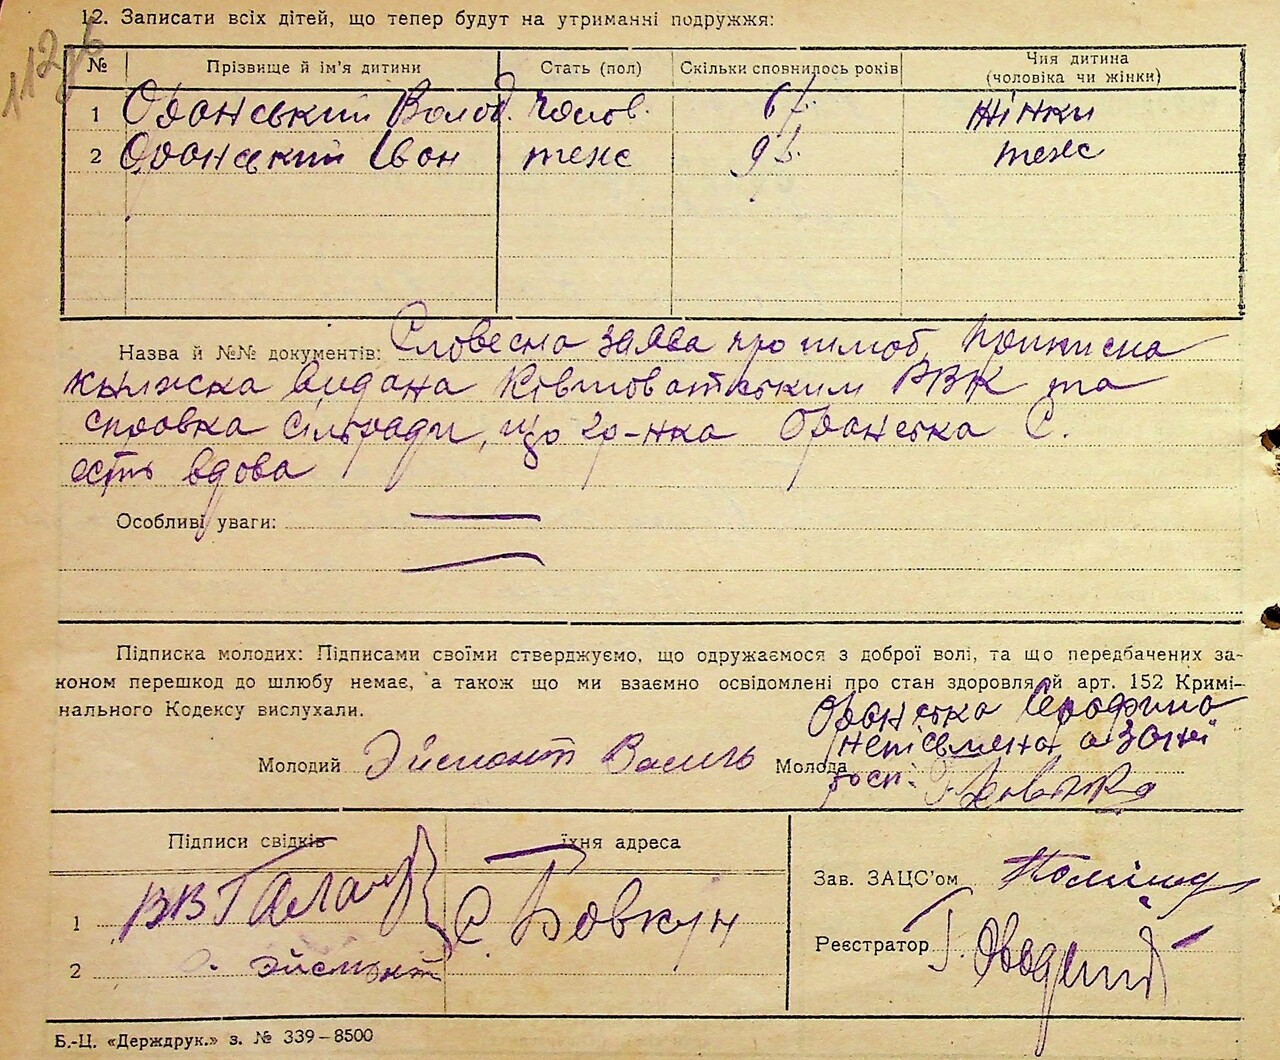 112зв
12. Записати всіх дітей, що тепер будут на утриманні подружжя:
№ Прізвище й ім'я дитини Стать (пол) Скільки сповнилось років Чия дитина (чоловіка чи жінки)
1 Оранський Волод. чолов. 6 л. жінки
2 Оранський Іван теже 9 л. теже
Назва й №№ документів: Словесна заява про шлюб, приписна
книжка видана Ківшоватським РВК та
справка сільради, що гр-нка Оранська С.
есть вдова
Особливі уваги:
Підписка молодих: Підписами своїми стверджуємо, що одружаємося з доброї волі, та що передбачених за-
коном перешкод до шлюбу немає, а також що ми взаємно освідомлені про стан здоровля й арт. 152 Кримі-
нального Кодексу вислухали.
Оранська Серафина
неписьмена а за неї
Молодий Эйсмонт Василь Молода росп.
Підписи свідків їхня адреса
Зав. ЗАЦС'ом
1 ВВ с Бовкун
Реєстратор Г.
2 Эйсмонт
Б.-Ц. «Держдрук.» з. № 339–8500